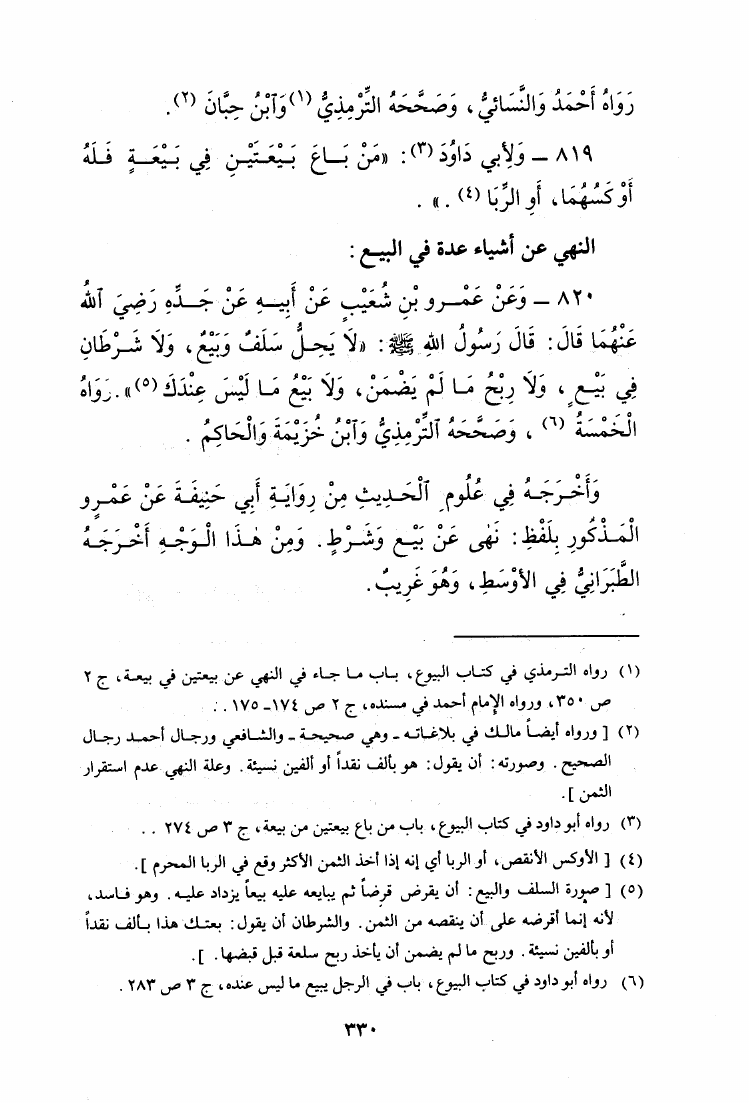 رَوَاهُ أَحْمَدُ وَالنَّسَائِيُّ، وَصَحَّحَهُ التِّرْمِذِيُّ (١) وَٱبْنُ حِبَّانَ (٢).
٨١٩ ــ وَلِأبي دَاوُدَ (٣): «مَنْ بَــاعَ بَـيْـعَـتَـيْـنِ فِي بَـيْـعَــةٍ فَــلَهُ
أَوْكَسُهُمَا، أَوِ الرِّبَا (٤) .» .
النهي عن أشياء عدة في البيـع :
٨٢٠ ــ وَعَنْ عَمْــرِو بْنِ شُعَيْبٍ عَنْ أَبِيــهِ عَنْ جَــدِّهِ رَضِيَ ٱللهُ
عَنْهُمَا قَالَ: قَالَ رَسُولُ اللهِ ﷺ: «لَا يَحِلُّ سَلَفٌ وَبَيْعٌ، وَلَا شَــرْطَانِ
فِي بَيْــعٍ، وَلَا رِبْحُ مَـا لَمْ يَضْمَنْ، وَلَا بَيْعُ مَـا لَيْسَ عِنْدَكَ (٥)». رَوَاهُ
الْخَمْسَةُ (٦) ، وَصَحَّحَهُ ٱلتِّرْمِذِيُّ وَٱبْنُ خُزَيْمَةَ وَالْحَاكِمُ .
وَأَخْـرَجَـهُ فِي عُلُومِ ٱلْحَـدِيثِ مِنْ رِوَايَةِ أَبِي حَنِيفَـةَ عَنْ عَمْـرٍو
الْمَـذْكُورِ بِلَفْظِ: نَهَى عَنْ بَيْـعٍ وَشَـرْطٍ. وَمِنْ هٰـذَا الْـوَجْـهِ أَخْـرَجَـهُ
الطَّبَرَانِيُّ فِي الأَوْسَطِ، وَهُوَ غَرِيبٌ.
(١) رواه التـرمذي في كتـاب البيوع، بـاب مـا جـاء في النهي عن بيعتين في بيعـة، ج ٢
ص ٣٥٠، ورواه الإمام أحمد في مسنده، ج ٢ ص ١٧٤ ـ ١٧٥ . .
(٢) [ ورواه أيضـاً مالـك في بلاغـاتـه ـ وهي صحيحـة ـ والشـافعي ورجـال أحمـد رجـال
الصحيح. وصورته: أن يقول: هو بألف نقداً أو ألفين نسيئة. وعلة النهي عدم استقرار
الثمن ].
(٣) رواه أبو داود في كتاب البيوع، باب من باع بيعتين من بيعة، ج ٣ ص ٢٧٤ . .
(٤) [ الأوكس الأنقص، أو الربا أي إنه إذا أخذ الثمن الأكثر وقع في الربا المحرم ].
(٥) [ صورة السلف والبيع: أن يقرض قرضاً ثم يبايعه عليه بيعاً يزداد عليـه. وهو فـاسد،
لأنه إنما أقرضه على أن ينقصه من الثمن. والشرطان أن يقول: بعتـك هذا بـألف نقداً
أو بألفين نسيئة. وربح ما لم يضمن أن يأخذ ربح سلعة قبل قبضها. ].
(٦) رواه أبو داود في كتاب البيوع، باب في الرجل يبيع ما ليس عنده، ج ٣ ص ٢٨٣.
٣٣٠